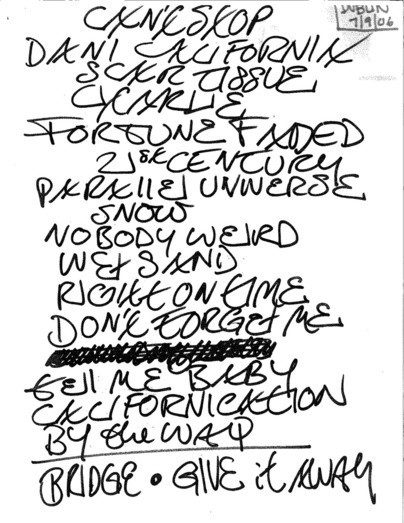 CAN'T STOP
7/9/06
DANI CALIFORNIA
SCAR TISSUE
CHARLIE
FORTUNE FADED
21st CENTURY
PARAllEl UNIVERSE
SNOW
NOBODY WEIRD
WEt SAND
RIGHT ON tIME
DON'T FORGEt ME
tEll ME BABY
CALIFORNICATION
BY the WAY
BRIDGE • GIVE it AWAY